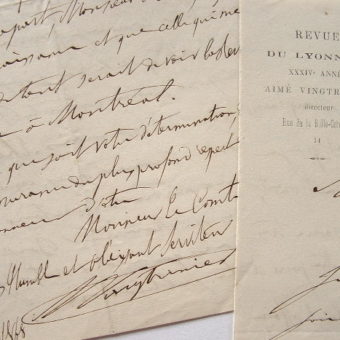 part, Monsieur
naissance et que celle qui me
de tout serait de voir les
à Montréal.
que soit votre détermination
du plus profond respect
d'être
Monsieur Le Comte
humble et obéissant serviteur
Vingtrinier
1868
REVUE
DU LYONN
XXXIVe ANNÉ
AIMÉ VINGTR
directeur
Rue de la Belle-Cor
14